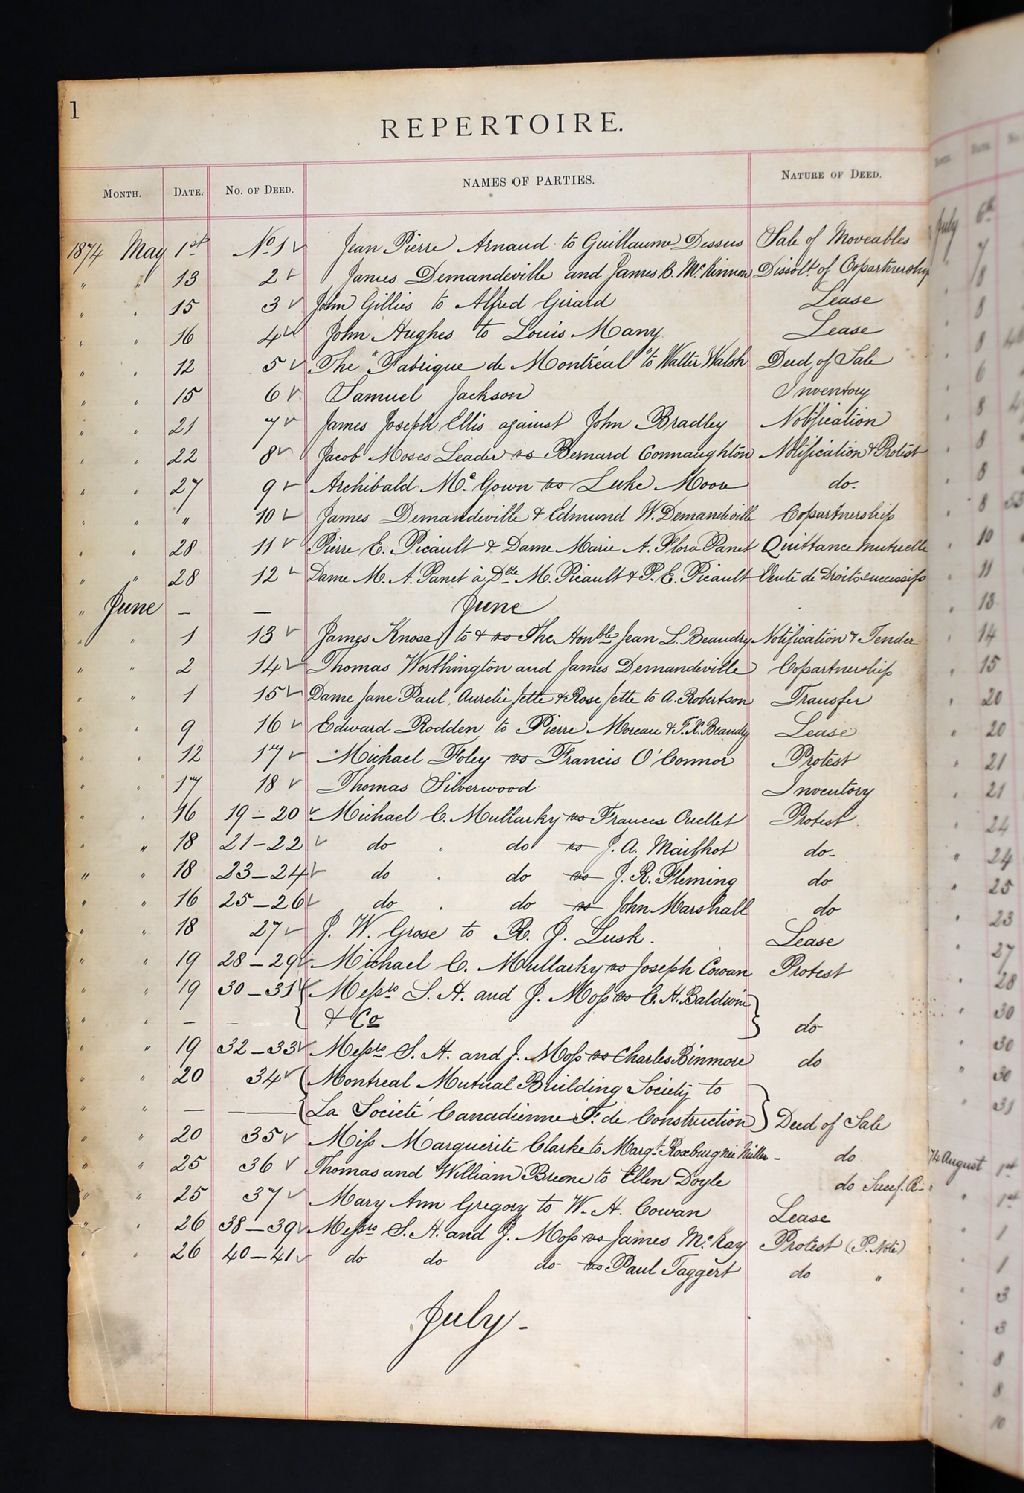 1
REPERTOIRE.
MONTH. DATE. NO. OF DEED. NAMES OF PARTIES. NATURE OF DEED.
1874 May 1st No 1 Jean Pierre Arnaud to Guillaume Dessus Sale of Moveables
" " 13 2 James Demandeville and James B. McKinnon Dissolt. of Copartnership
" " 15 3 John Gillies to Alfred Girard Lease
" " 16 4 John Hughes to Louis Many Lease
" " 12 5 The "Fabrique de Montréal" to Walter Walsh Deed of Sale
" " 15 6 Samuel Jackson Inventory
" " 21 7 James Joseph Ellis against John Bradley Notification
" " 22 8 Jacob Moses Leader vs Bernard Connaughton Notification & Protest
" " 27 9 Archibald Mc Gown vs Luke Moore do-
" " " 10 James Demandeville & Edmund W. Demandeville Copartnership
" " 28 11 Pierre E. Picault & Dame Marie A. Flora Panet Quittance mutuelle
" " 28 12 Dame M. A. Panet à Dlle M. Picault & P. E. Picault Vente de Droits successifs
" June — — June
" " 1 13 James to & vs The Honble Jean L. Beaudry Notification & Tender
" " 2 14 Thomas Worthington and James Demandeville Copartnership
" " 1 15 Dame Jane Paul, Aurelie Jette & Rose Jette to A. Robertson Transfer
" " 9 16 Edward Rodden to Pierre Moreau & F. X. Beaudry Lease
" " 12 17 Michael Foley vs Francis O'Connor Protest
" " 17 18 Thomas Silverwood Inventory
" " 16 19-20 Michael C. Mullarky vs Francis Ouellet Protest.
" " 18 21-22 do . do vs J. A. Mailhot do-
" " 18 23-24 do . do vs J. R. Fleming do
" " 16 25-26 do . do vs John Marshall do
" " 18 27 J. W. Grose to R. J. Lusk. Lease
" " 19 28-29 Michael C. Mullarky vs Joseph Cowan Protest
" " 19 30-31 Messrs S. H. and J. Moss vs C. H. Baldwin
" " — — & Co do
" " 19 32-33 Messrs S. H. and J. Moss vs Charles Binmore do
" " 20 34 Montreal Mutual Building Society to
" " — — La Societé Canadienne F. de Construction Deed of Sale
" " 20 35 Miss Marguerite Clarke to Margt. do
" " 25 36 Thomas and William to Ellen Doyle do
" " 25 37 Mary Ann Gregory to W. H. Cowan Lease
" " 26 38-39 Messrs S. H. and J. Moss vs James McKay Protest (P. Note)
" " 26 40-41 do do do vs Paul Taggert do "
July-
July 6th
7
8
8
8
6
8
8
8
8
10
11
13
14
15
20
20
21
21
24
24
25
23
27
28
30
30
30
31
August 1st
1st
1
1
3
3
8
8
10